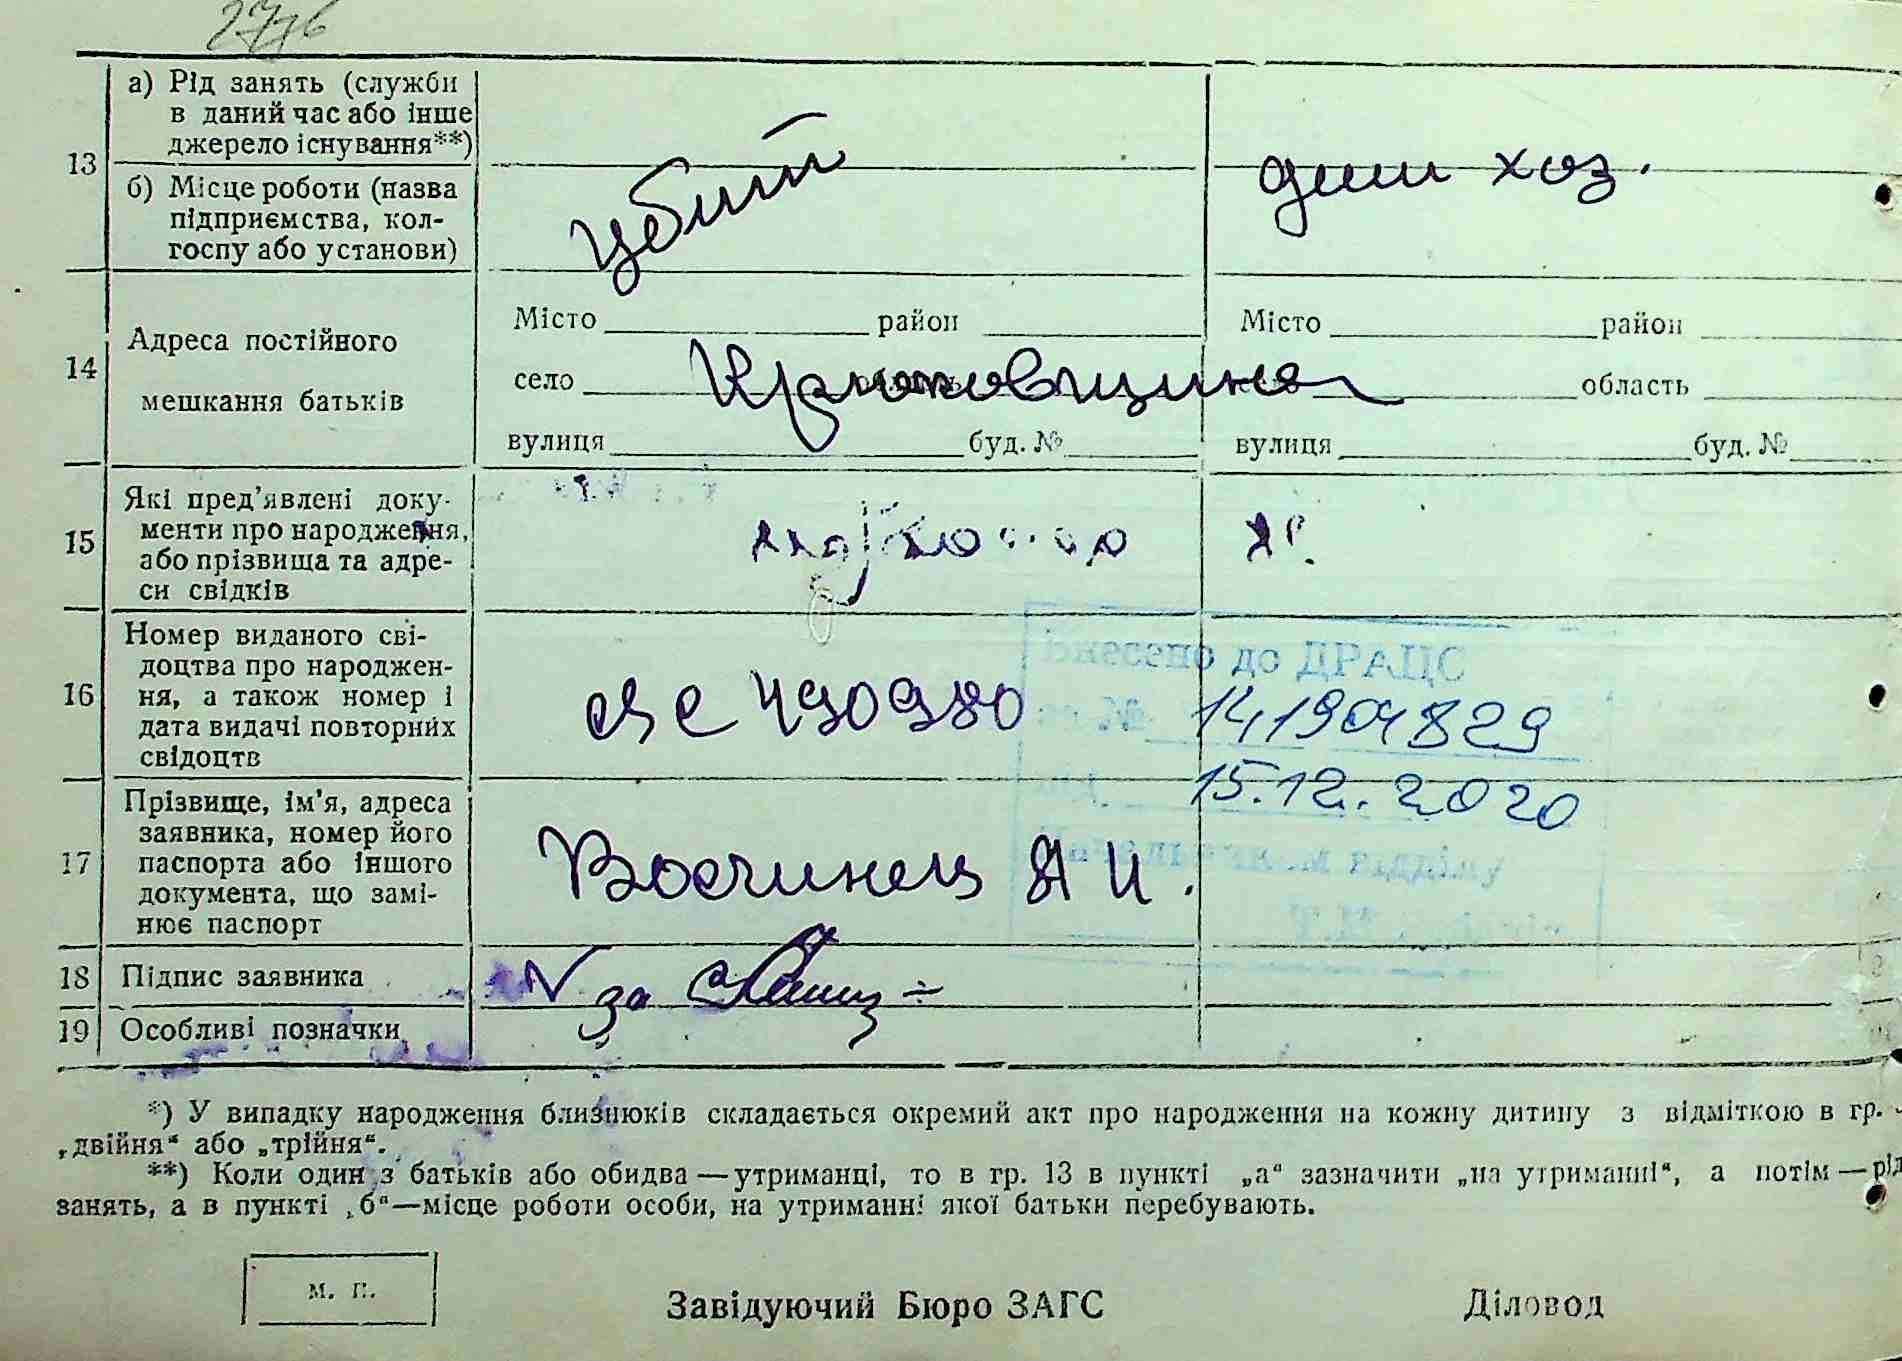 2776
а) Рід занять (служби
в даний час або інше
джерело існування**)
13
б) Місце роботи (назва
підприємства, кол-
госпу або установи)
убит
дом хоз.
14
Адреса постійного
мешкання батьків
Місто район
село
вулиця буд. №
Крюковщина
Місто район
область
вулиця буд. №
15
Які пред’явлені доку-
менти про народження,
або прізвища та адре-
си свідків
16
Номер виданого сві-
доцтва про народжен-
ня, а також номер і
дата видачі повторних
свідоцтв
490980
Внесено до ДРАЦС
№ 141904829
від 15.12.2020
Начальником відділу
17
Прізвище, ім’я, адреса
заявника, номер його
паспорта або іншого
документа, що замі-
нює паспорт
Войчинец Я И.
18 Підпис заявника
за
19 Особливі позначки
*) У випадку народження близнюків складається окремий акт про народження на кожну дитину з відміткою в гр.
„двійня“ або „трійня“.
**) Коли один з батьків або обидва — утриманці, то в гр. 13 в пункті „а“ зазначити „на утриманні“, а потім — рід
занять, а в пункті „б“—місце роботи особи, на утриманні якої батьки перебувають.
М. П.
Завідуючий Бюро ЗАГС
Діловод